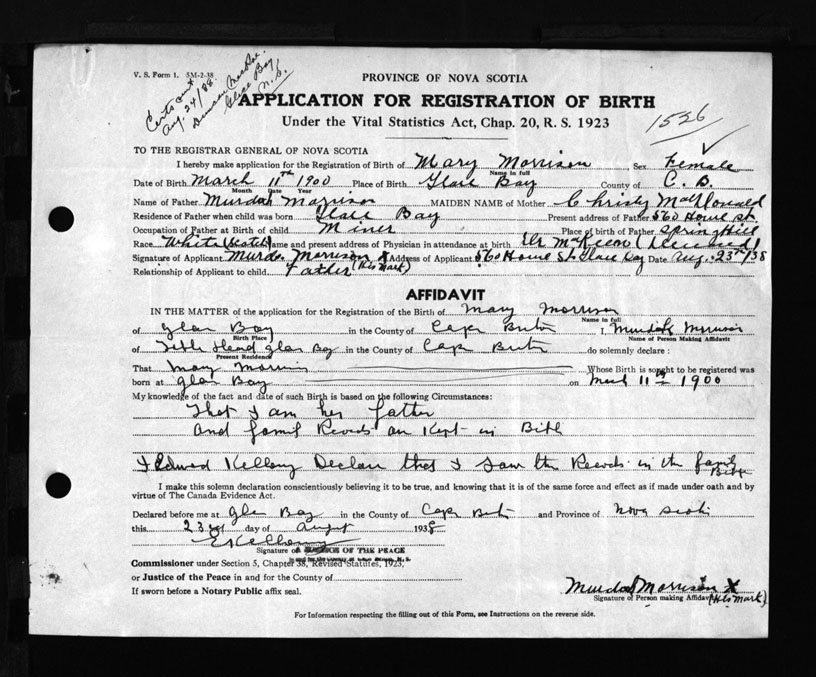 V. S. Form 1. 5M-2-38
Certs sent
Aug. 24/38.
Duncan MacRae.
Glace Bay
N. S.
PROVINCE OF NOVA SCOTIA
APPLICATION FOR REGISTRATION OF BIRTH
Under the Vital Statistics Act, Chap. 20, R. S. 1923
1526
TO THE REGISTRAR GENERAL OF NOVA SCOTIA
I hereby make application for the Registration of Birth of Mary Morrison Sex Female
Name in full
Date of Birth March 11th 1900 Place of Birth Glace Bay County of C. B.
Month Date Year
Name of Father Murdoh Morrison MAIDEN NAME of Mother Christy MacDonald
Residence of Father when child was born Glace Bay Present address of Father 560 Howie St.
Occupation of Father at Birth of child Miner Place of birth of Father Spring Hill
Race White (Scotch) ame and present address of Physician in attendance at birth Dr McKeen (Deceased)
Signature of Applicant Murdo Morrison X Address of Applicant 560 Howie St Glace Bay Date Aug. 23rd/38
Relationship of Applicant to child Father (His Mark)
AFFIDAVIT
IN THE MATTER of the application for the Registration of the Birth of Mary Morrison
Name in full
of Glace Bay in the County of Cape Breton I, Murdoh Morrison
Birth Place Name of Person Making Affidavit
of Table Head Glace Bay in the County of Cape Breton do solemnly declare :
Present Residence
That Mary Morrison Whose Birth is sought to be registered was
born at Glace Bay on March 11th 1900
My knowledge of the fact and date of such Birth is based on the following Circumstances:
That I am her father
and family Records are Kept in Bible
I Edward Kelloway Declare that I saw the Records in the family
Bible
I make this solemn declaration conscientiously believing it to be true, and knowing that it is of the same force and effect as if made under oath and by
virtue of The Canada Evidence Act.
Declared before me at Glace Bay in the County of Cape Breton and Province of Nova Scotia
this 23rd day of August 1938
E Kelloway
Signature of JUSTICE OF THE PEACE
Commissioner under Section 5, Chapter 38, Revised Statutes, 1923,
or Justice of the Peace in and for the County of
If sworn before a Notary Public affix seal.
Murdoh Morrison X
Signature of Person making Affidavit (His Mark)
For Information respecting the filling out of this Form, see Instructions on the reverse side.